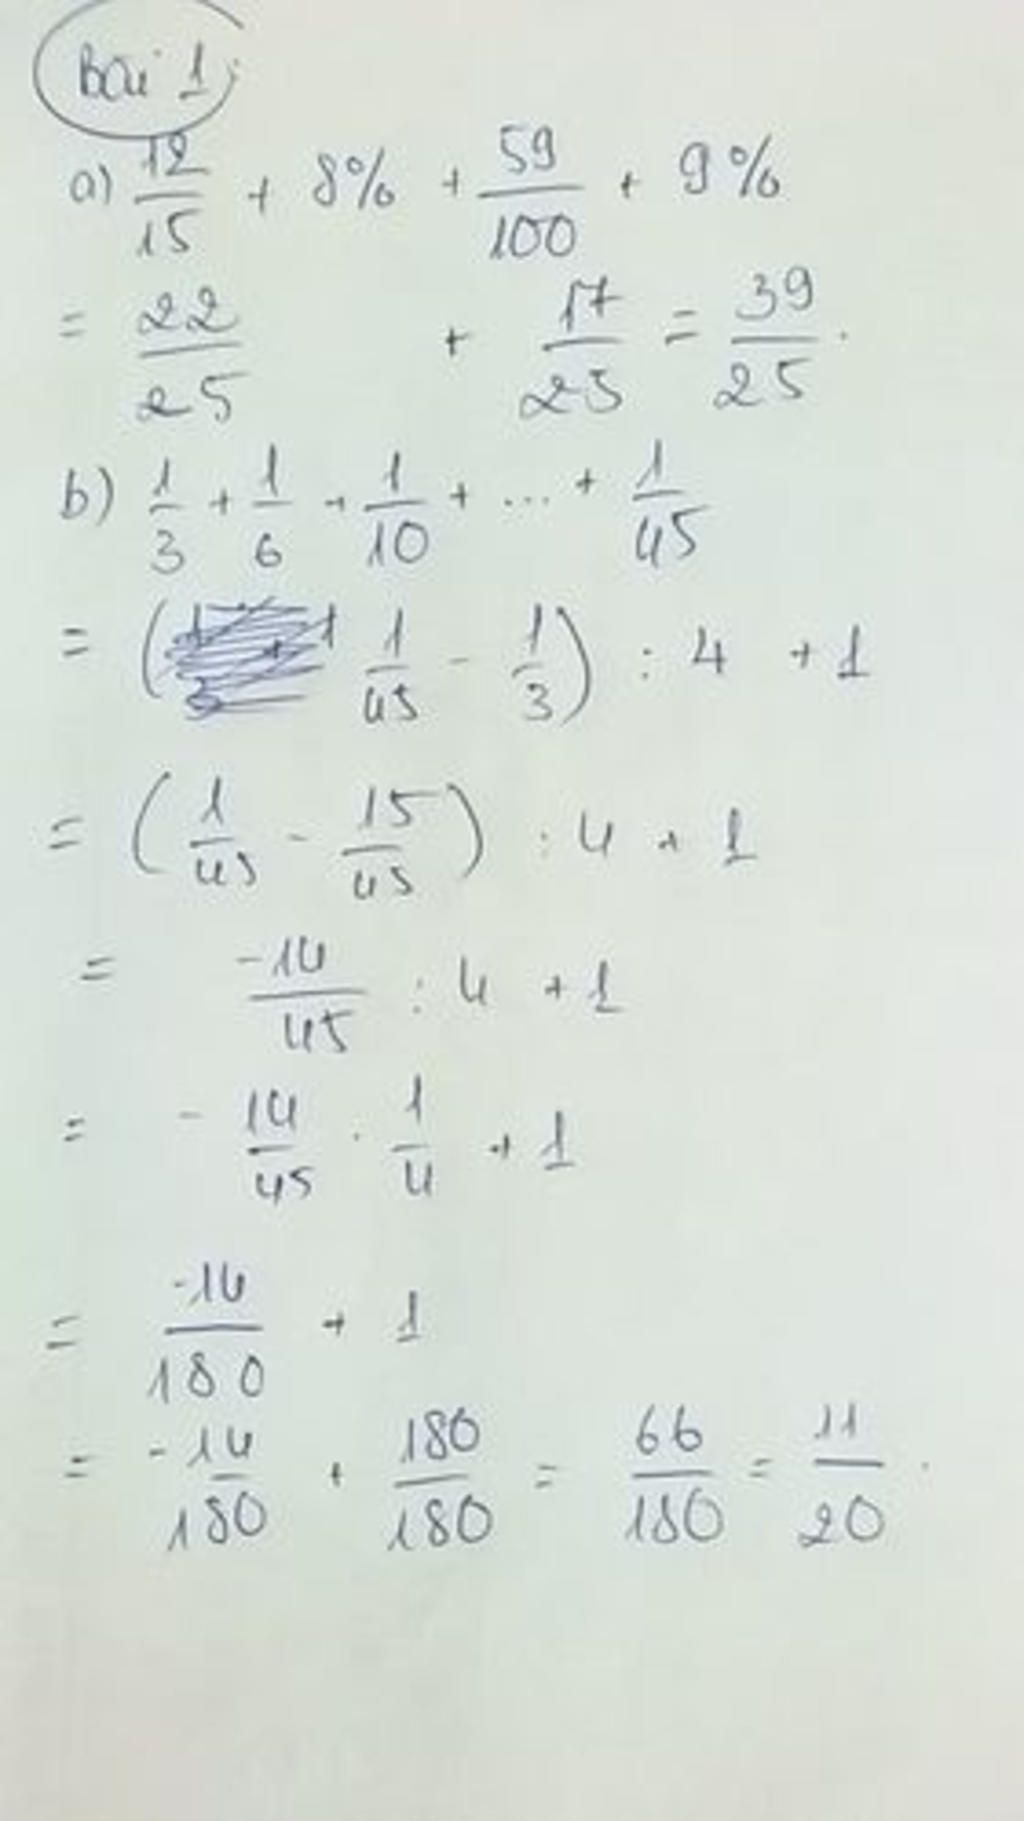 Bài 1:
a) 12/15 + 8% + 59/100 + 9%
= 22/25 + 17/25 = 39/25.
b) 1/3 + 1/6 + 1/10 + ... + 1/45
= ( 1/45 - 1/3 ) : 4 + 1
= ( 1/45 - 15/45 ) : 4 + 1
= -14/45 : 4 + 1
= - 14/45 . 1/4 + 1
= -14/180 + 1
= -14/180 + 180/180 = 66/180 = 11/20.